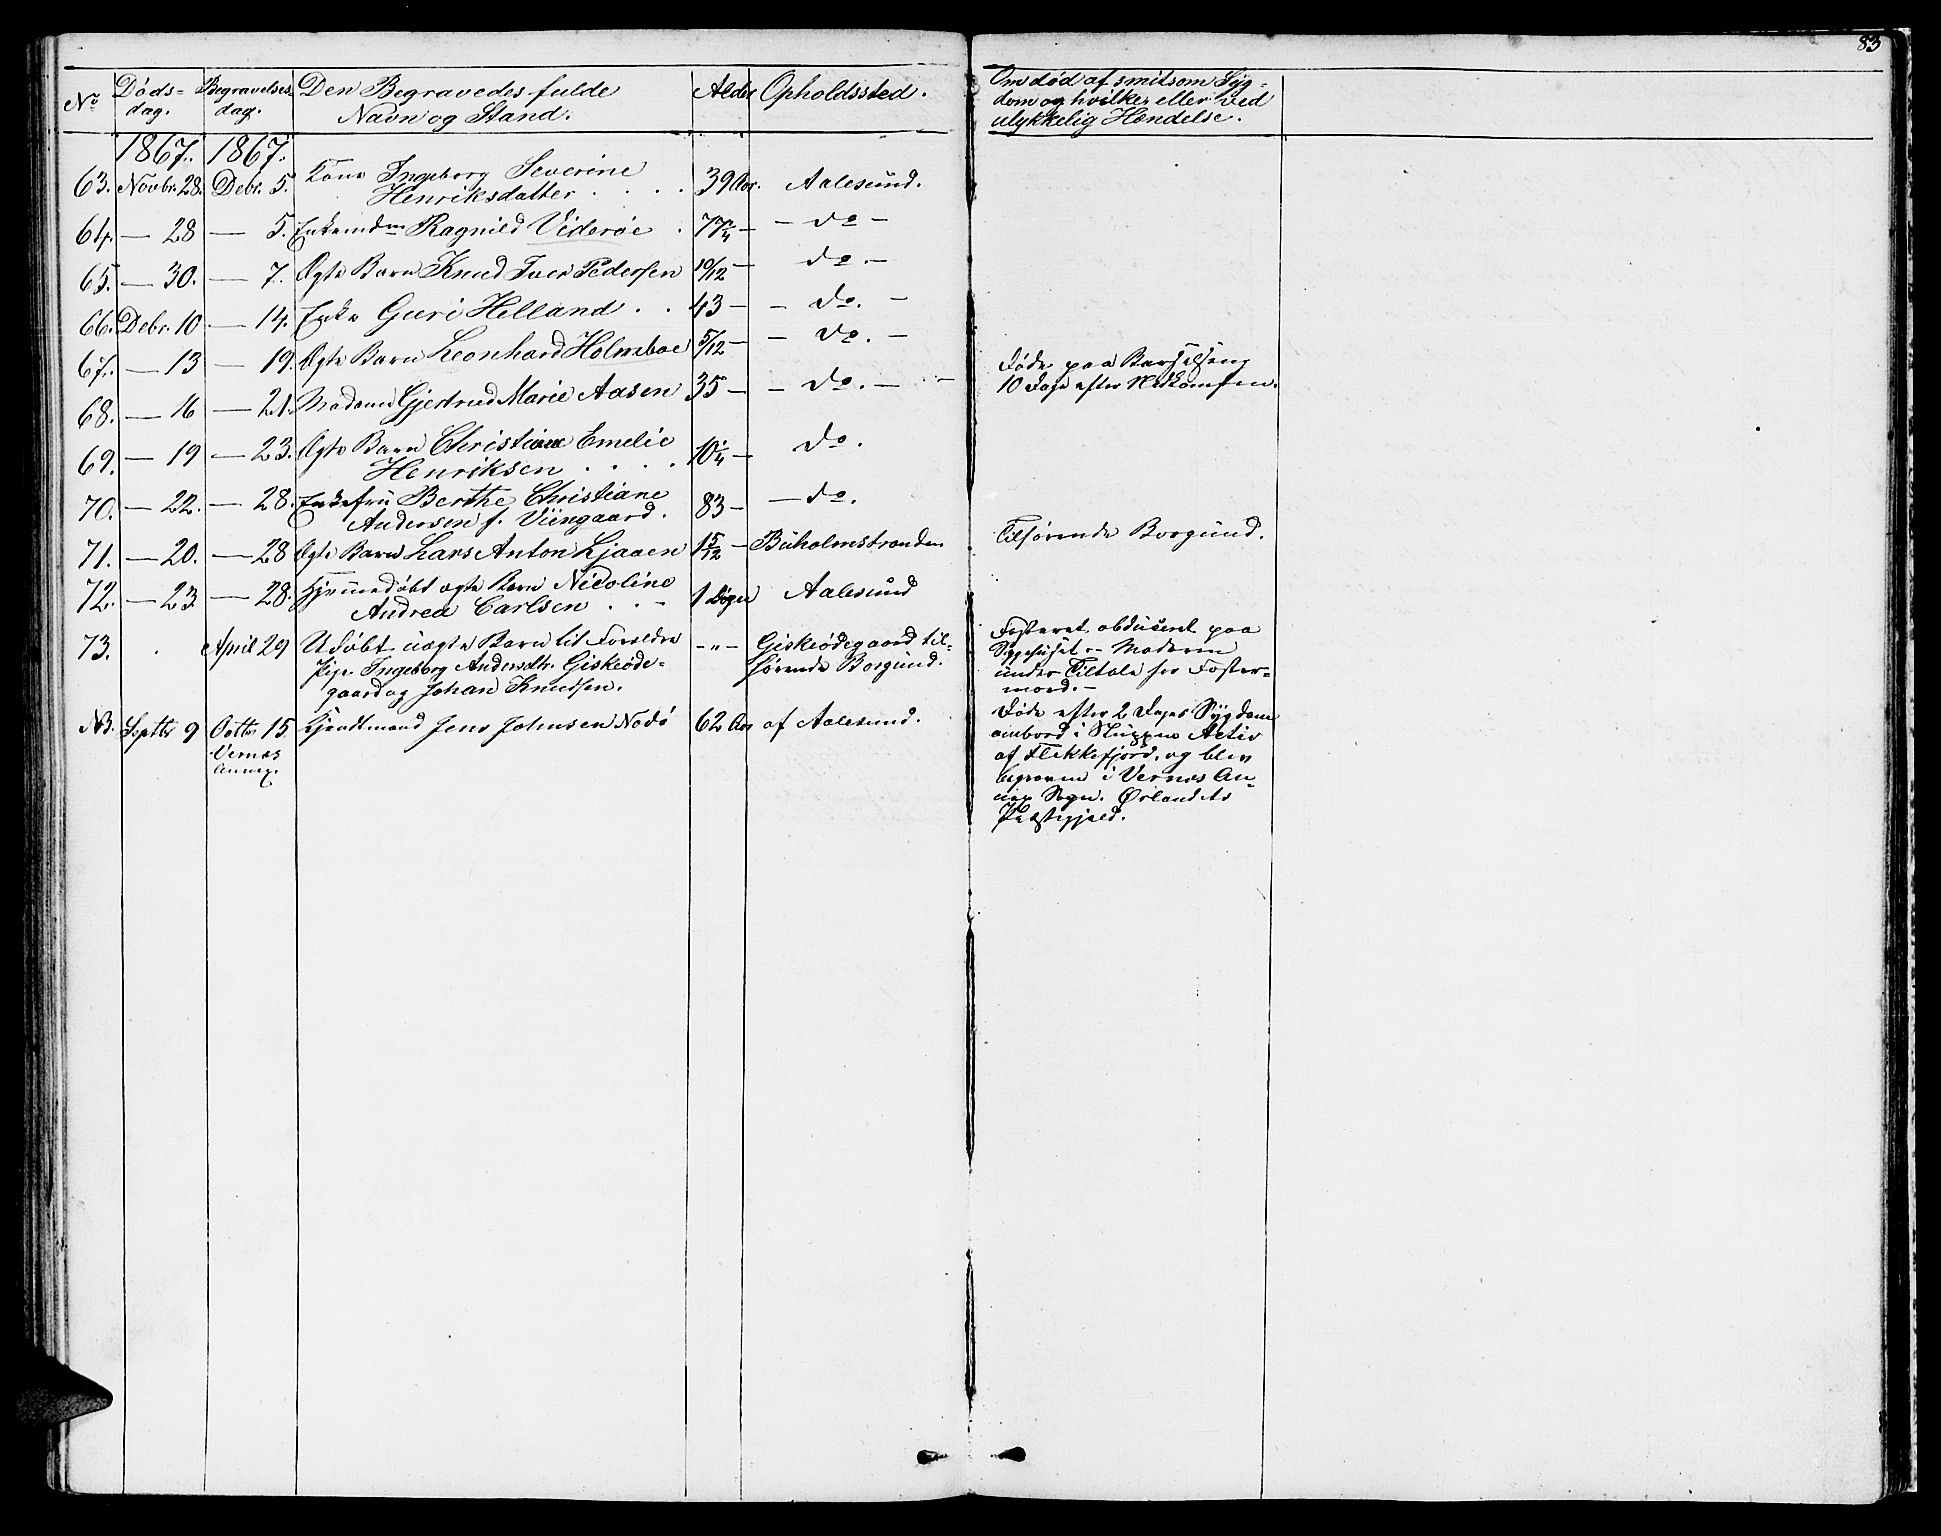 83
No Døds- Begravelses Den Begravedes fulde Alder Opholdssted. Om død af smitsom Syg-
dag. dag. Navn og Stand. dom og hvilken eller ved
ulykkelig Hændelse.
1867. 1867.
63. Novbr. 28. Debr. 5. Kone Ingeborg Severine
Henriksdatter . . . . 39 Aar. Aalesund.
64. — 28 — 5. Ragnild Viderøe . 77 3/4 — — do —
65. — 30. — 7. Ægte Barn Knud Iver Pedersen 10/12 — do. —
66. Debr. 10 — 14. Enke Guri Helland . . 43 — — do. —
67. — 13 — 19. Ægte Barn Leonhard Holmboe 5/12 — — do. —
68. — 16 — 21. Madame Gjertrud Marie Aasen 35 — — do. — Døde paa Barselseng
10 Dage efter Nedkomsten.
69. — 19 — 23. Ægte Barn Christiane Emelie
Henriksen . . . . 10 1/4 — do.
70. — 22. — 28. Enkefru Berthe Christiane
Andersen f. Viingaard. 83 — — do.
71. — 20. — 28 Ægte Barn Lars Anton Ljaaen 1 5/12 — Buholmstranden Tilhørende Borgund.
72. — 23 — 28. Hjemmedøbt ægte Barn Nicoline
Andrea Carlsen . . — 1 Døgn Aalesund
73. . April 29 Udøbt uægte Barn til Forældre -"- Giskeødegaard til- Fosteret obduceret paa
Pige Ingeborg Andersdtr. Giskeøde- hørende Borgund. Sygehuset — Moderen
gaard og Johan Knudsen. under Tiltale for Foster-
mord. —
NB. Septbr 9 Octbr 15 Jens Johnsen Nødø 62 Aar af Aalesund. Døde efter 2 Dages Sygdom
Vernæs ombord i Skuppen Activ
Annex. af Flekkefjord, og blev
begraven i Vernæs An-
nex Sogn. Ørlandets
Præstegjeld.